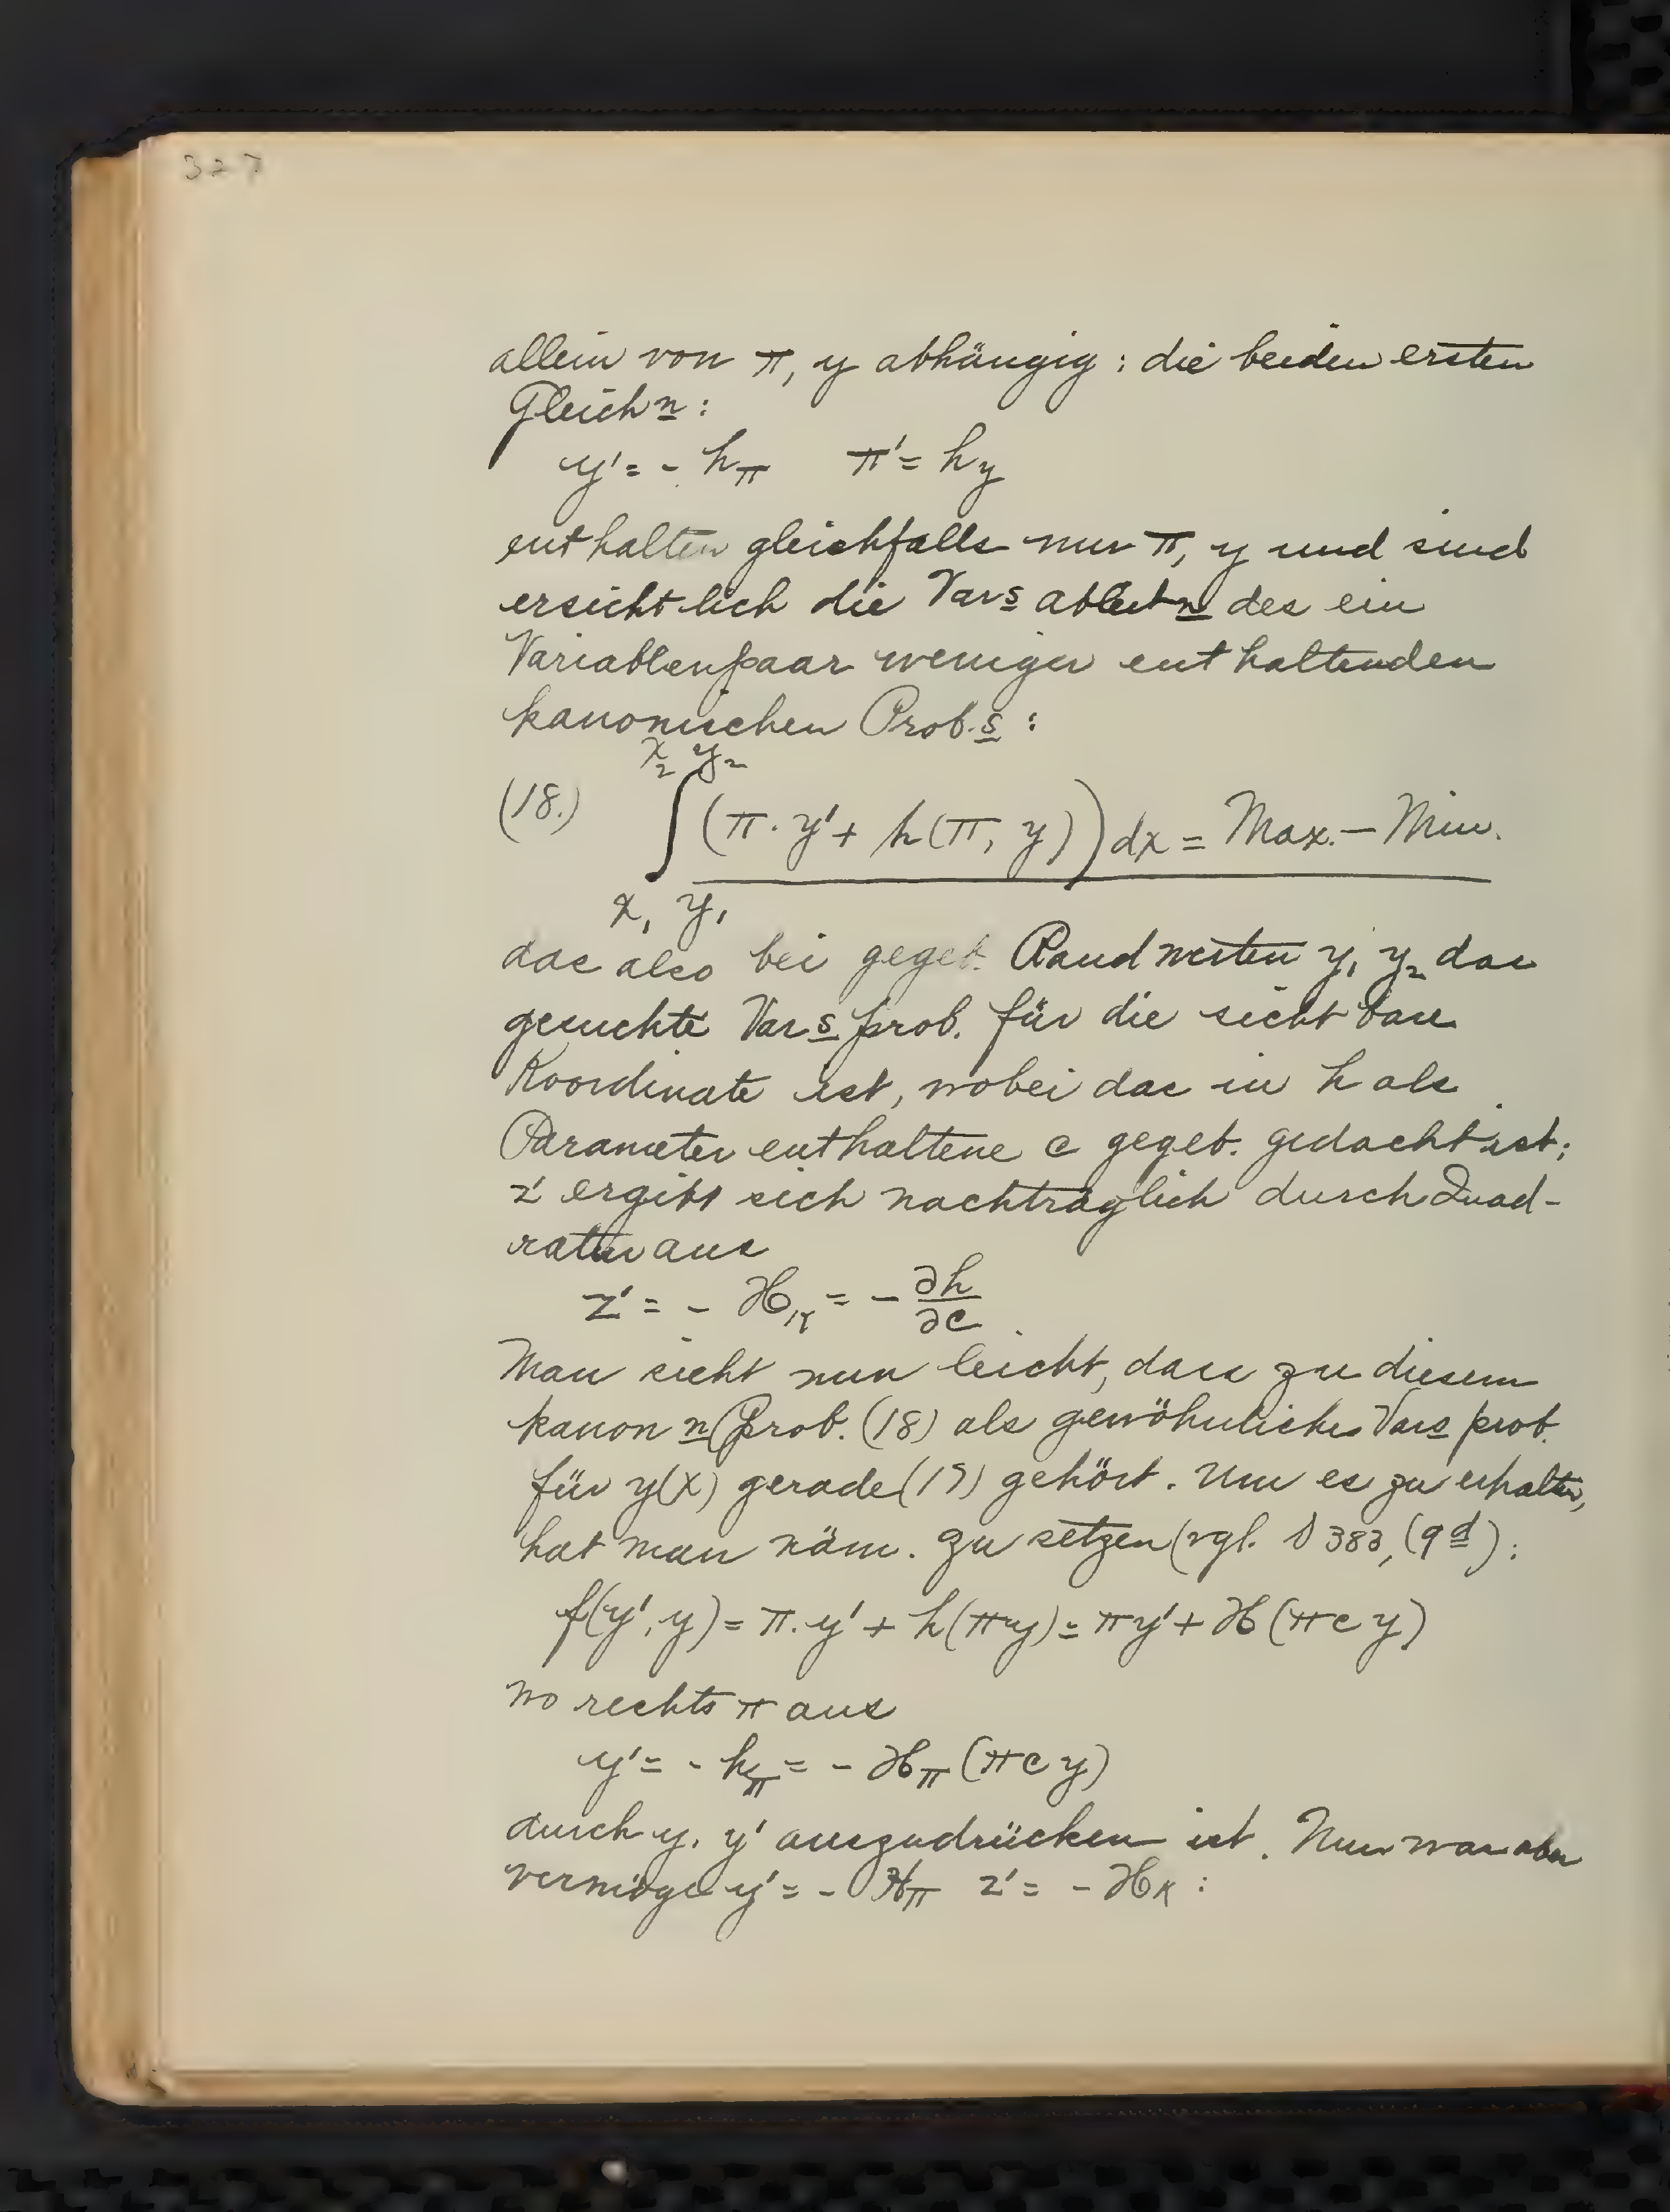 327
allein von π, y abhängig: die beiden ersten
Gleichn:
y' = - h_π   π' = h_y
enthalten gleichfalls nur π, y und sind
ersichtlich die Vars ableitn des ein
Variablenpaar weniger enthaltenden
kanonischen Prob.s:
x₂ y₂
(18.) ∫ (π · y' + h(π, y)) dx = Max. – Min.
x₁ y₁
das also bei gegeb. Randwerten y₁ y₂ das
gesuchte Vars prob. für die sichtbare
Koordinate ist, wobei das in h als
Parameter enthaltene c gegeb. gedacht ist;
z ergibt sich nachträglich durch Quad-
ratur aus
z' = - ℋ_κ = - ∂h/∂c
Man sieht nun leicht, dass zu diesem
kanon n Prob. (18) als gewöhnliches Vars prob.
für y(x) gerade (17) gehört. Um es zu erhalten,
hat man näm. zu setzen (vgl. S 383, (9d):
f(y', y) = π. y' + h(πy) = πy' + ℋ(π c y)
wo rechts π aus
y' = - h_π = - ℋ_π (π c y)
durch y, y' auszudrücken ist. Nun war aber
vermöge y' = - ℋ_π  z' = - ℋ_κ :